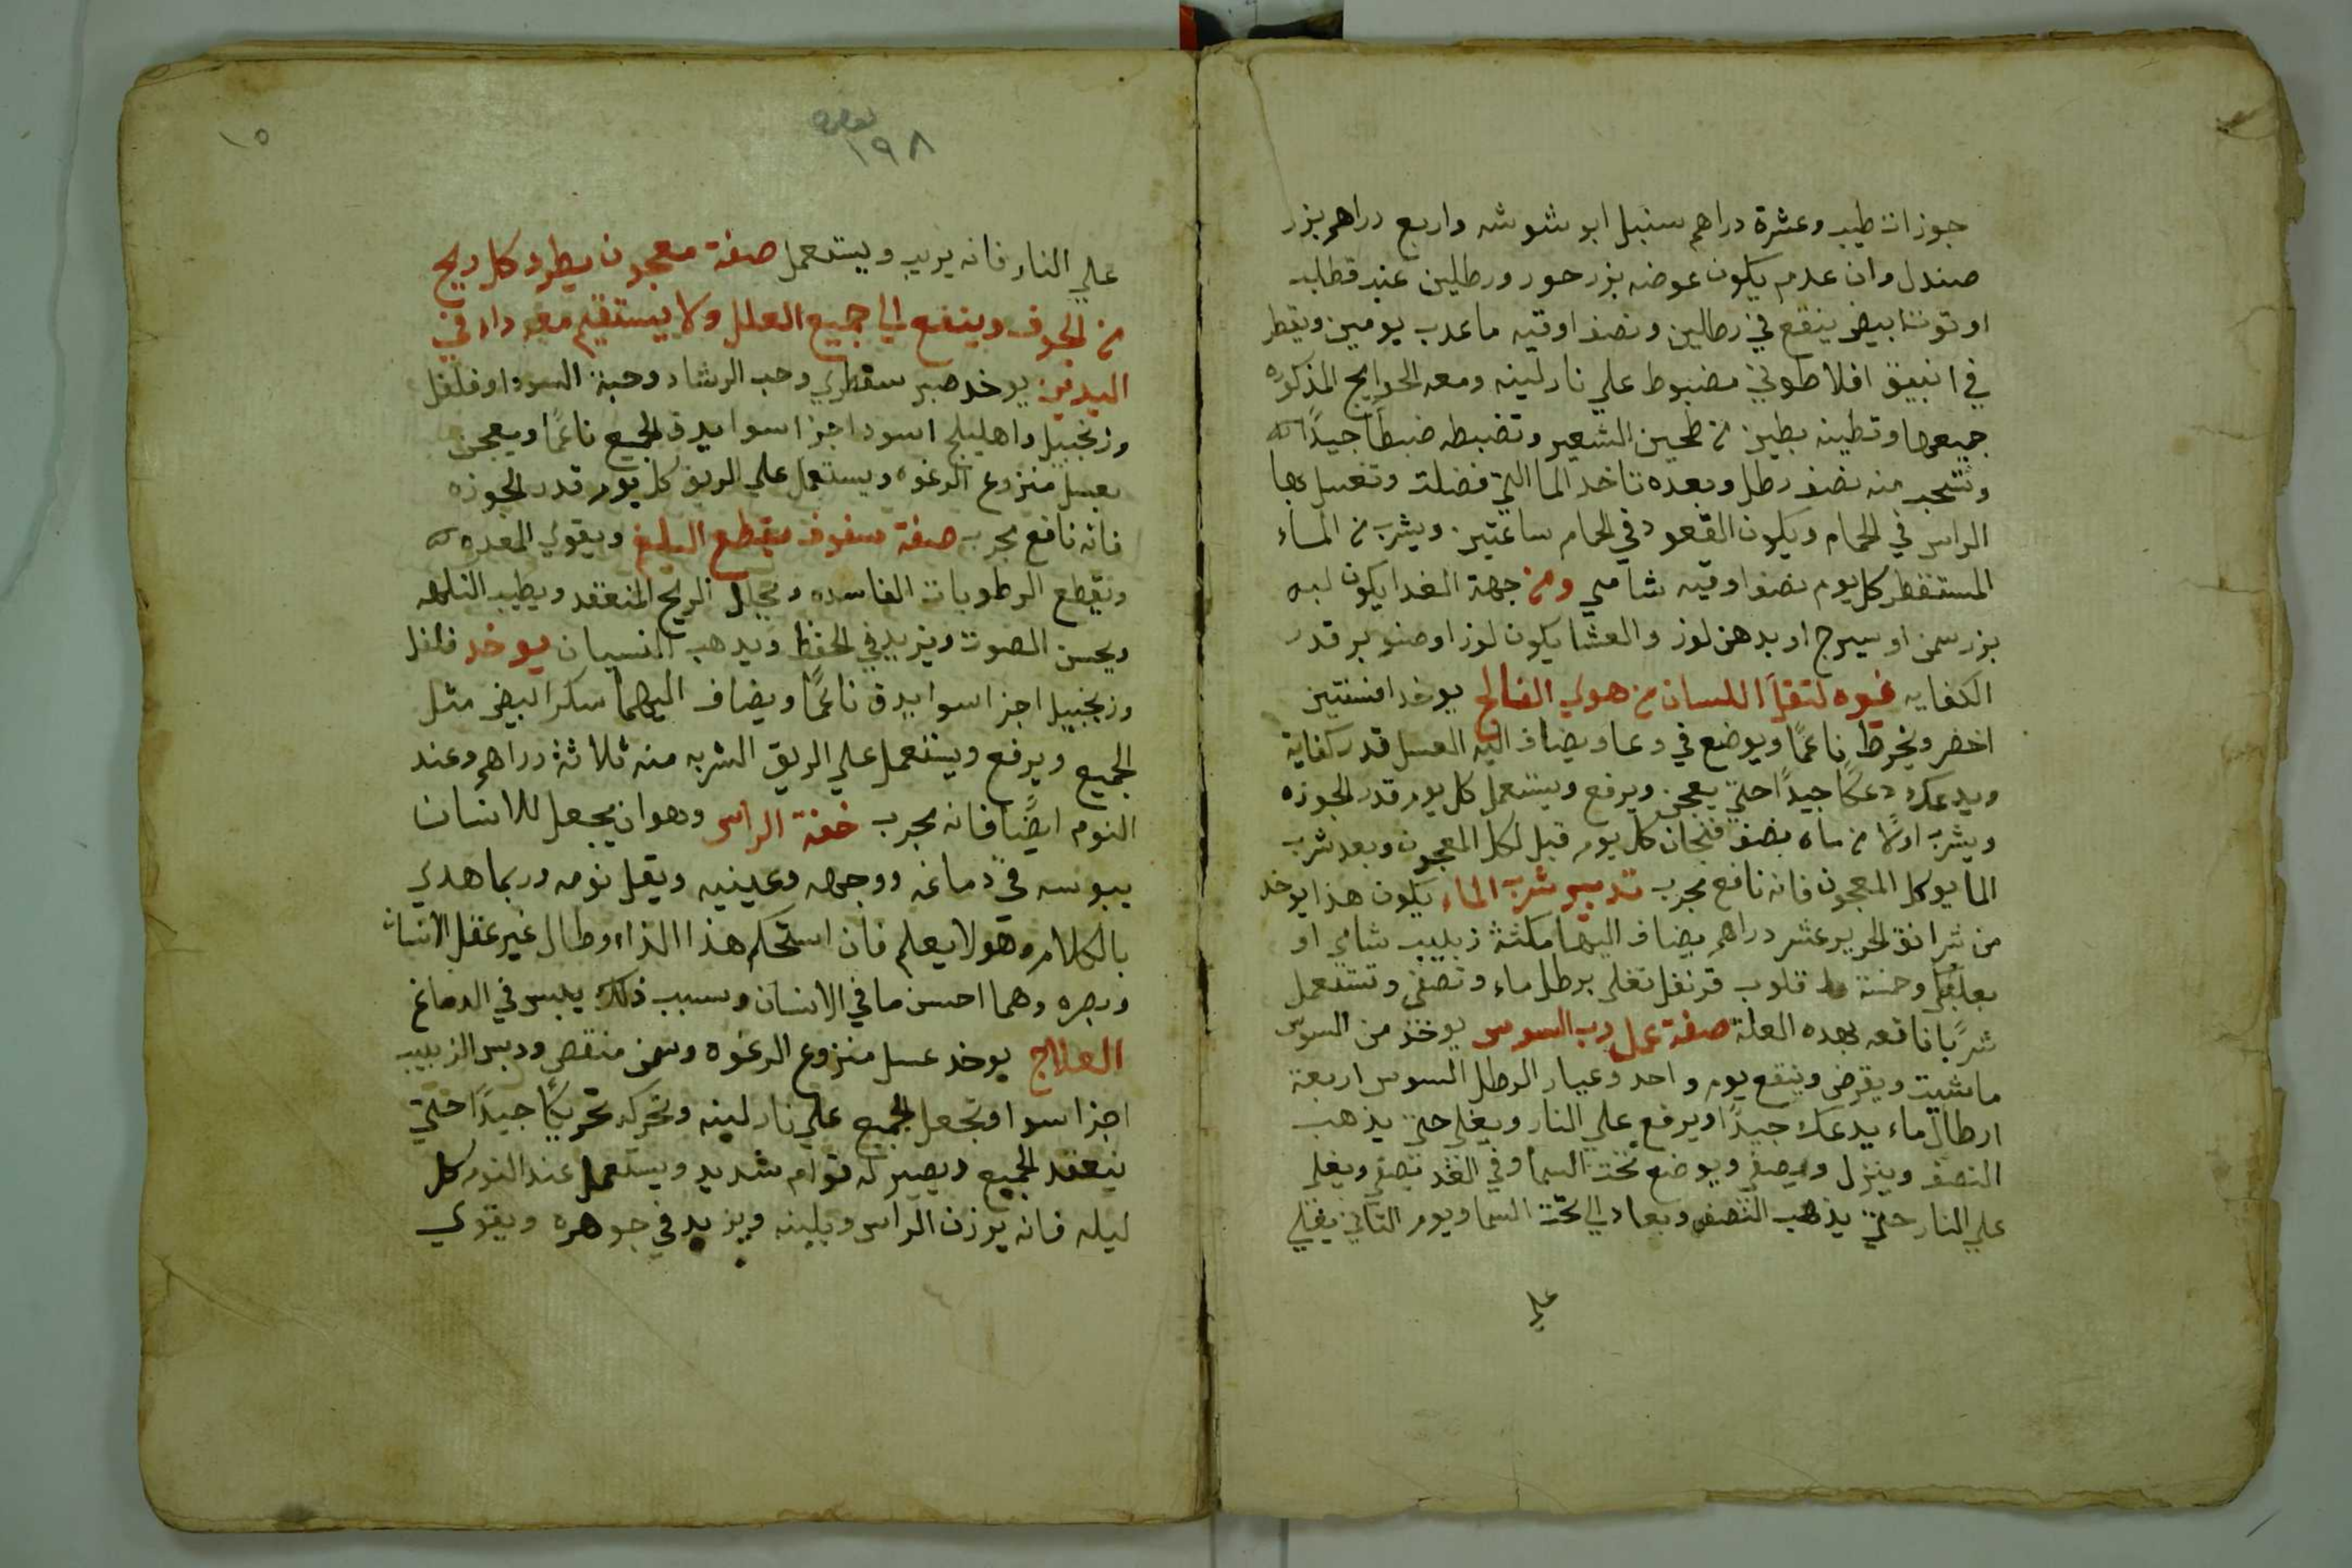 جوزات طيب وعشرة دراهم سنبل ابو شوشه واربع دراهم بزر
صندل وان عدم يكون عوضه بزر حور ورطلين عنبر قطلب
او توت ابيض ينقع في رطلين ونصف اوقيه ما عدب يومين ويقطر
في انبيق افلاطوني مضبوط علي نار لينه ومعه الحوايج المذكوره
جميعها وتطينه بطين من طحين الشعير وتضبطه ضبطاً جيداً
منه نصف رطل وبعده تاخد الما التي فضلت وتغسل بها
الراس في الحمام ويكون القعود في الحمام ساعتين ويشرب من الماء
المستقطر كل يوم نصف اوقيه شامي ومن جهة الغدا يكون لبه
بزر سمن او سيرج او بدهن لوز والعشا يكون لوز او صنوبر قدر
الكفايه غيره لتقل اللسان من هوي الفالج يوخد افسنتين
اخضر ويخرط ناعمًا ويوضع في وعا ويضاف اليه العسل قدر كفاية
ويدعك دعكًا جيداً حتي يعجن ويرفع ويستعمل كل يوم قدر الجوزه
ويشرب اولًا من ماء نصف فنجان كل يوم قبل اكل المعجون وبعد شرب
الما يوكل المعجون فانه نافع مجرب تدبير شرب الماء يكون هذا يوخد
من شرانق الحرير عشر دراهم يضاف اليها مكثة زبيب شامي او
بعلبكي وخمسة قلوب قرنفل تغلي برطل ماء وتصفي وتستعمل
شربًا نافعه بهده العلة صفة عمل رب السوس يوخذ من السوس
ما شيت ويقرض وينقع يوم واحد وعيار الرطل السوس اربعة
ارطال ماء يدعك جيداً ويرفع علي النار ويغلي حتي يذهب
النصف وينزل ويصفي ويوضع تحت السما وفي الغد تصفي ويغلي
علي النار حتي يذهب النصف ويعاد الي تحت السما ويوم التاني يغلي
علي
١٩٨
١٥
علي النار فانه يريب ويستعمل صفة معجون يطرد كل ريح
من الجوف وينفع الي جميع العلل ولا يستقيم معه داء في
البدن يوخد صبر سقطري وحب الرشاد وحبة السودا وفلفل
وزنجبيل واهليلج اسود اجزا سوا يدق الجميع ناعمًا ويعجن
بعسل منزوع الرغوه ويستعمل علي الريق كل يوم قدر الجوزه
فانه نافع مجرب صفة سفوف يقطع البلغم ويقوي المعده
ويقطع الرطوبات الفاسده ويحلل الريح المنعقد ويطيب النكهه
ويحسن الصوت ويزيد في الحفظ ويدهب النسيان يوخد فلفل
وزنجبيل اجزا سوا يدق ناعمًا ويضاف اليهما سكر ابيض مثل
الجميع ويرفع ويستعمل علي الريق الشربه منه ثلاثة دراهم وعند
النوم ايضًا فانه مجرب خفة الراس وهو ان يجعل للانسان
يبوسه في دماغه ووجهه وعينيه ويقل نومه وربما هدي
بالكلام وهو لا يعلم فان استحكم هذا الداء وطال غير عقل الانسان
وبصره وهما احسن ما في الانسان وسبب ذلك يبس في الدماغ
العلاج يوخد عسل منزوع الرغوه وسمن منقص ودبس الزبيب
اجزا سوا وتجعل الجميع علي نار لينه وتحركه تحريكًا جيداً حتي
ينعقد الجميع ويصير له قوام شديد ويستعمل عند النوم كل
ليله فانه يوزن الراس ويلينه ويزيد في جوهره ويقوي